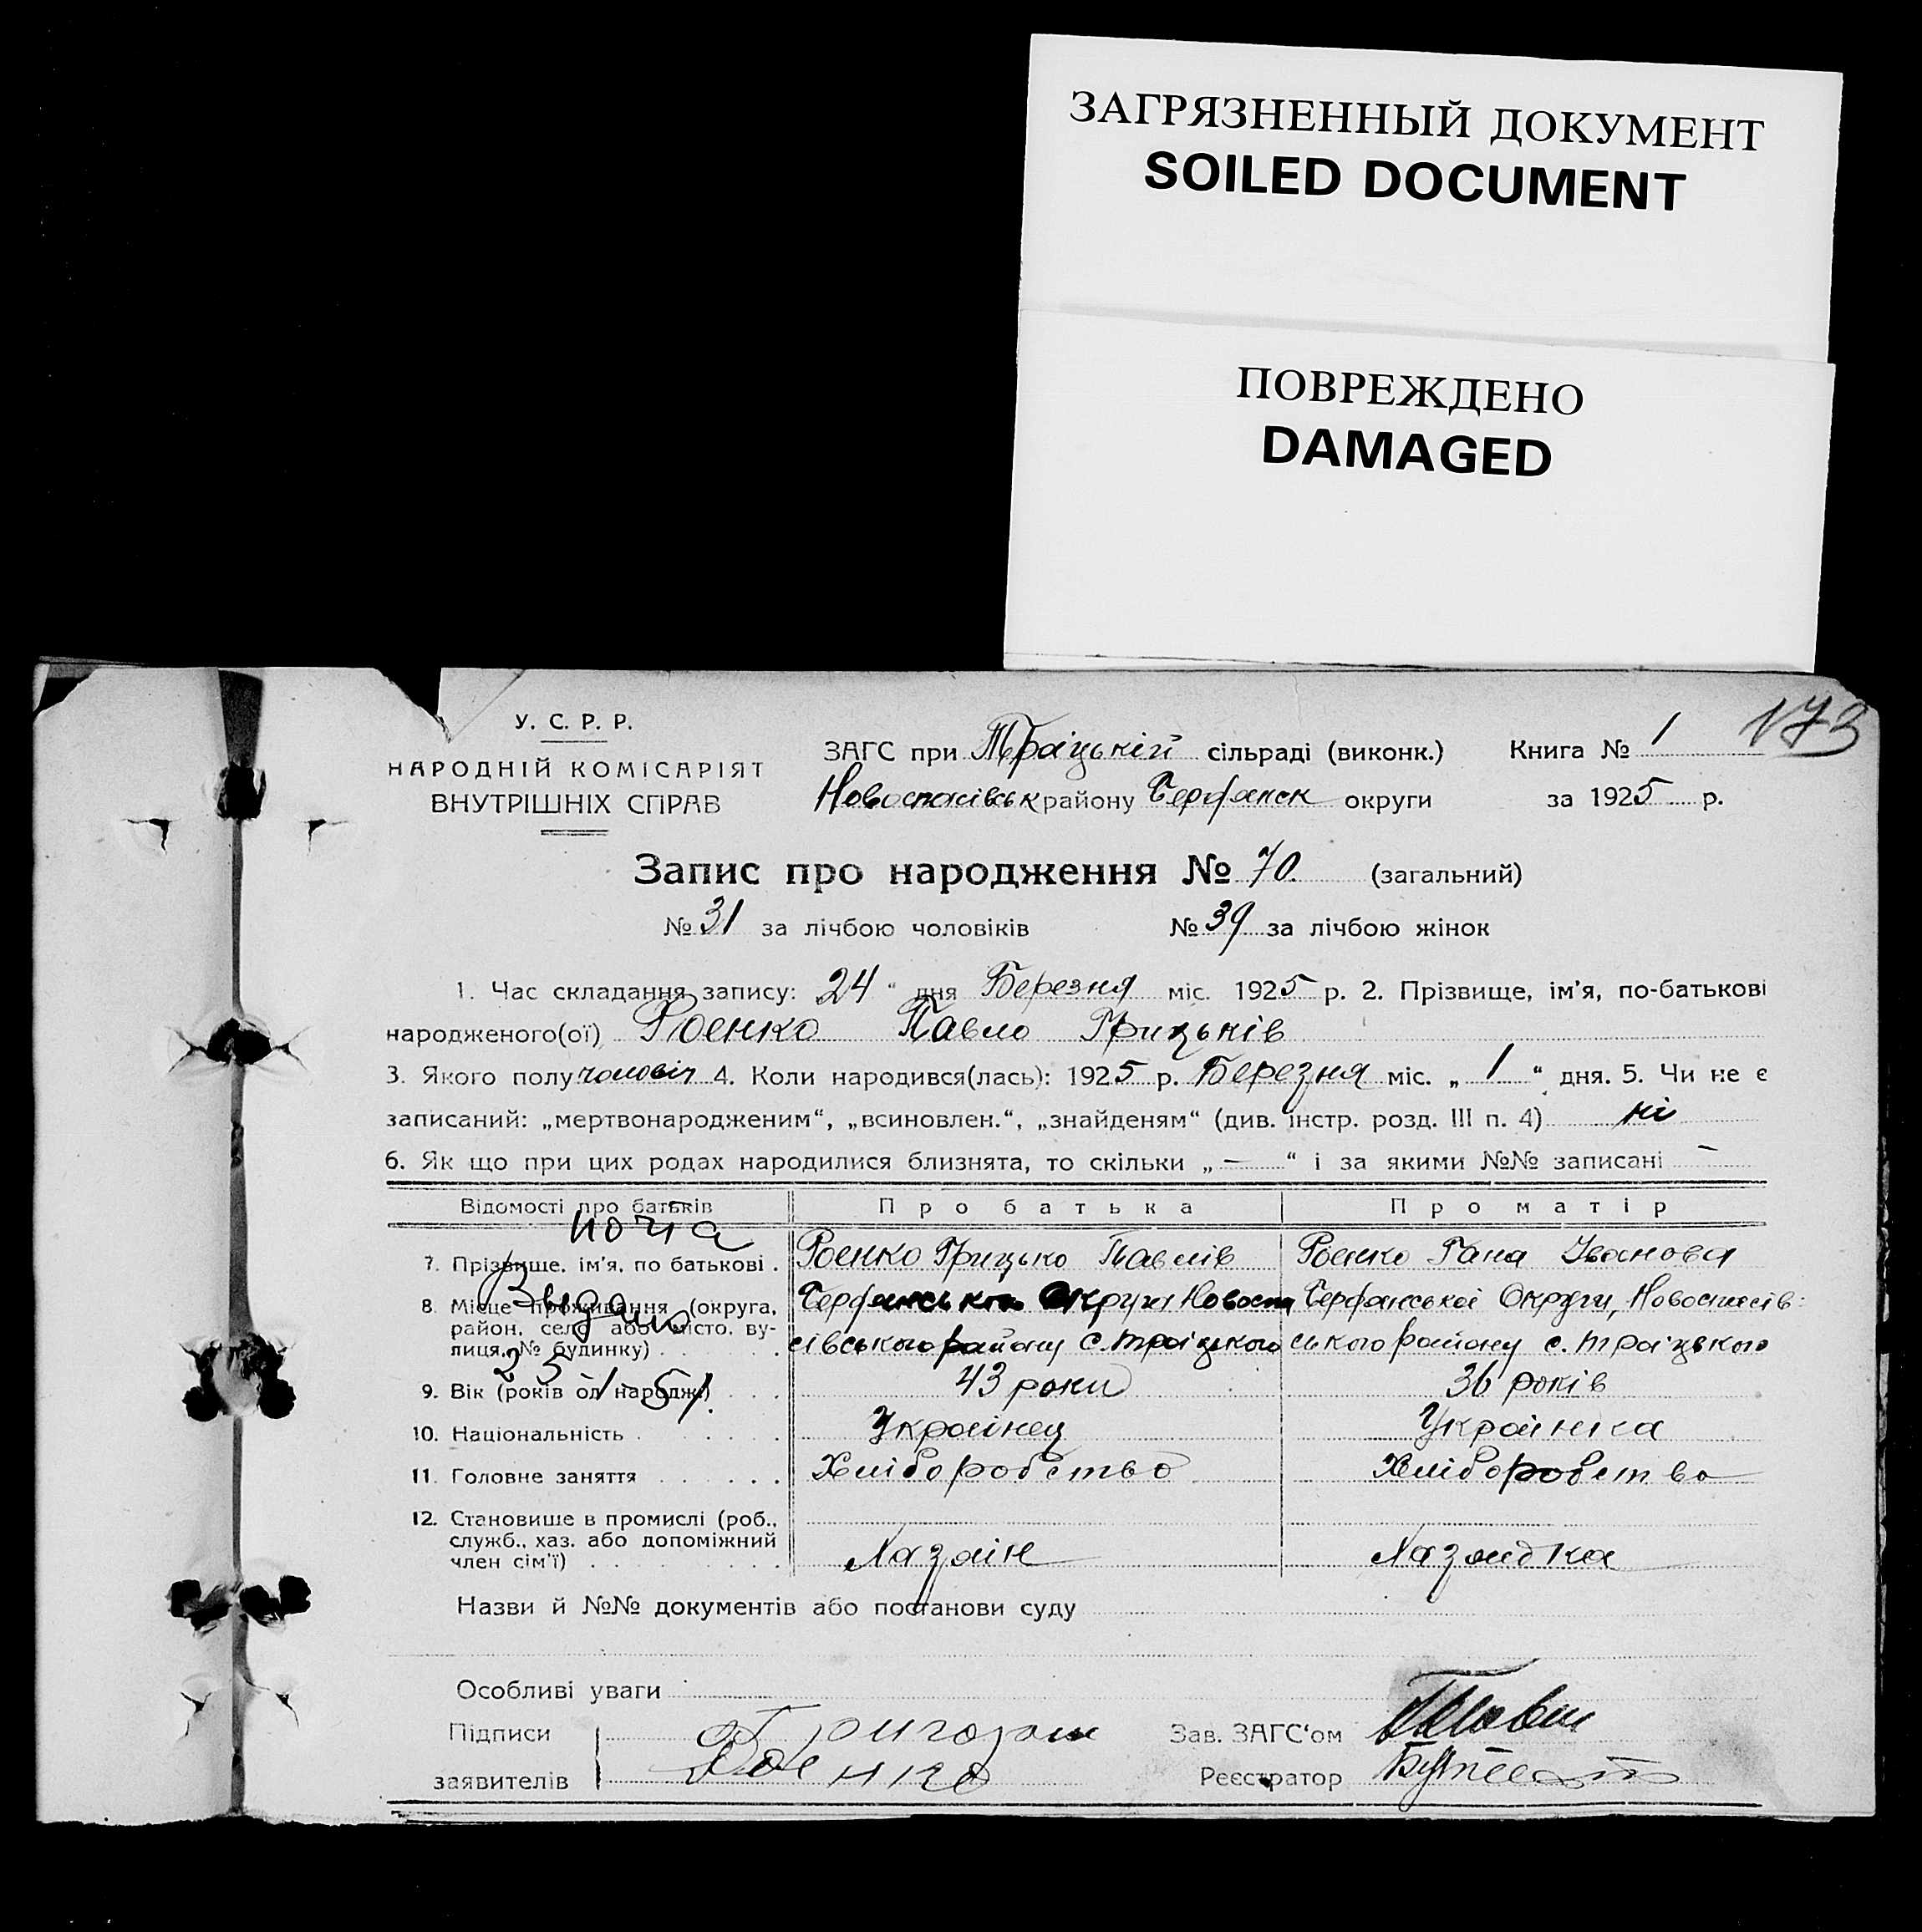 ЗАГРЯЗНЕННЫЙ ДОКУМЕНТ
SOILED DOCUMENT
ПОВРЕЖДЕНО
DAMAGED
173
У. С. Р. Р.
НАРОДНІЙ КОМІСАРІЯТ
ВНУТРІШНІХ СПРАВ
ЗАГС при Троіцькій сільраді (виконк.) Книга № 1
Новоспасівськ району Бердянськ округи за 1925 р.
Запис про народження № 70. (загальний)
№ 31 за лічбою чоловіків № 39 за лічбою жінок
1. Час складання запису: 24 " дня Березня міс. 1925 р. 2. Прізвище, ім'я, по-батькові
народженого(ої) Роенко Павло Грицьків
3. Якого полу чоловіч 4. Коли народився(лась): 1925 р. Березня міс. „ 1 " дня. 5. Чи не є
записаний: „мертвонародженим", „всиновлен.", „знайденям" (див. інстр. розд. III п. 4) ні
6. Як що при цих родах народилися близнята, то скільки „ — " і за якими №№ записані —
Відомості про батьків Про батька Про матір
7. Прізвище, ім'я, по батькові . Роенко Грицько Павлів Роенко Гана Іванова
8. Місце проживання (округа, район, село або місто, вулиця, № будинку) . . .
Округи Новоспа Бердянської Округи, Новоспасів:
сівського району с. Троіцького ського району с. Троіцького
Видано
25 1-51.
9. Вік (років од народж.) . . . 43 роки 36 років
10. Національність . . . . . Украінец Украінка
11. Головне заняття . . . . . Хліборобство Хліборобство
12. Становище в промислі (роб.,
служб., хаз. або допоміжний
член сім'ї) . . . . . . Хазаін Хазаидка
Назви й №№ документів або постанови суду
Особливі уваги
Підписи Зав. ЗАГС'ом
заявителів Роенко Реєстратор